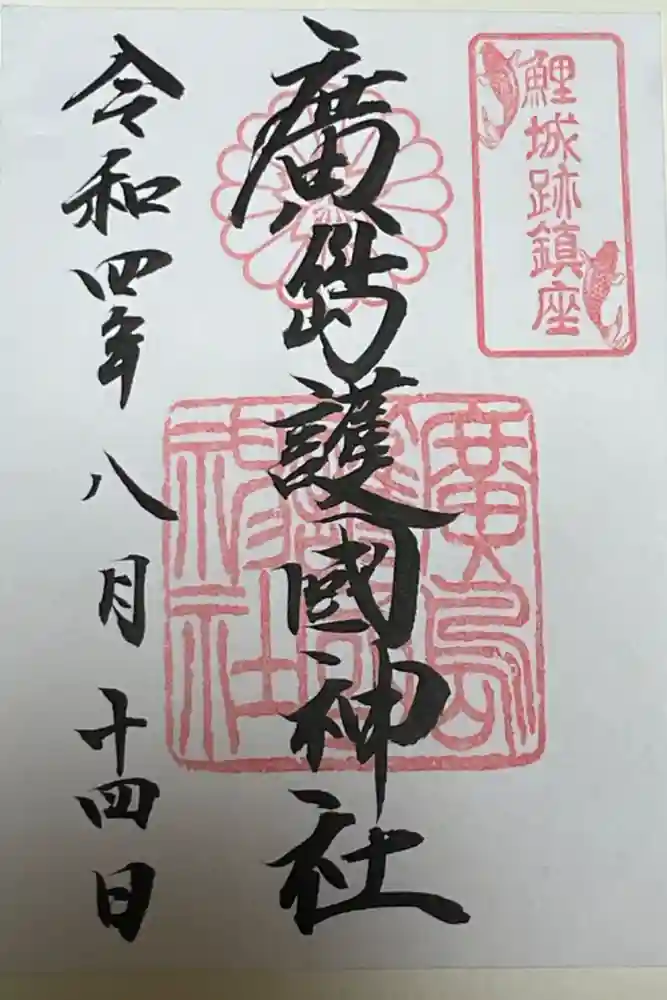 鯉城跡鎮座
廣島護國神社
廣島
護國
神社
令和四年八月十四日